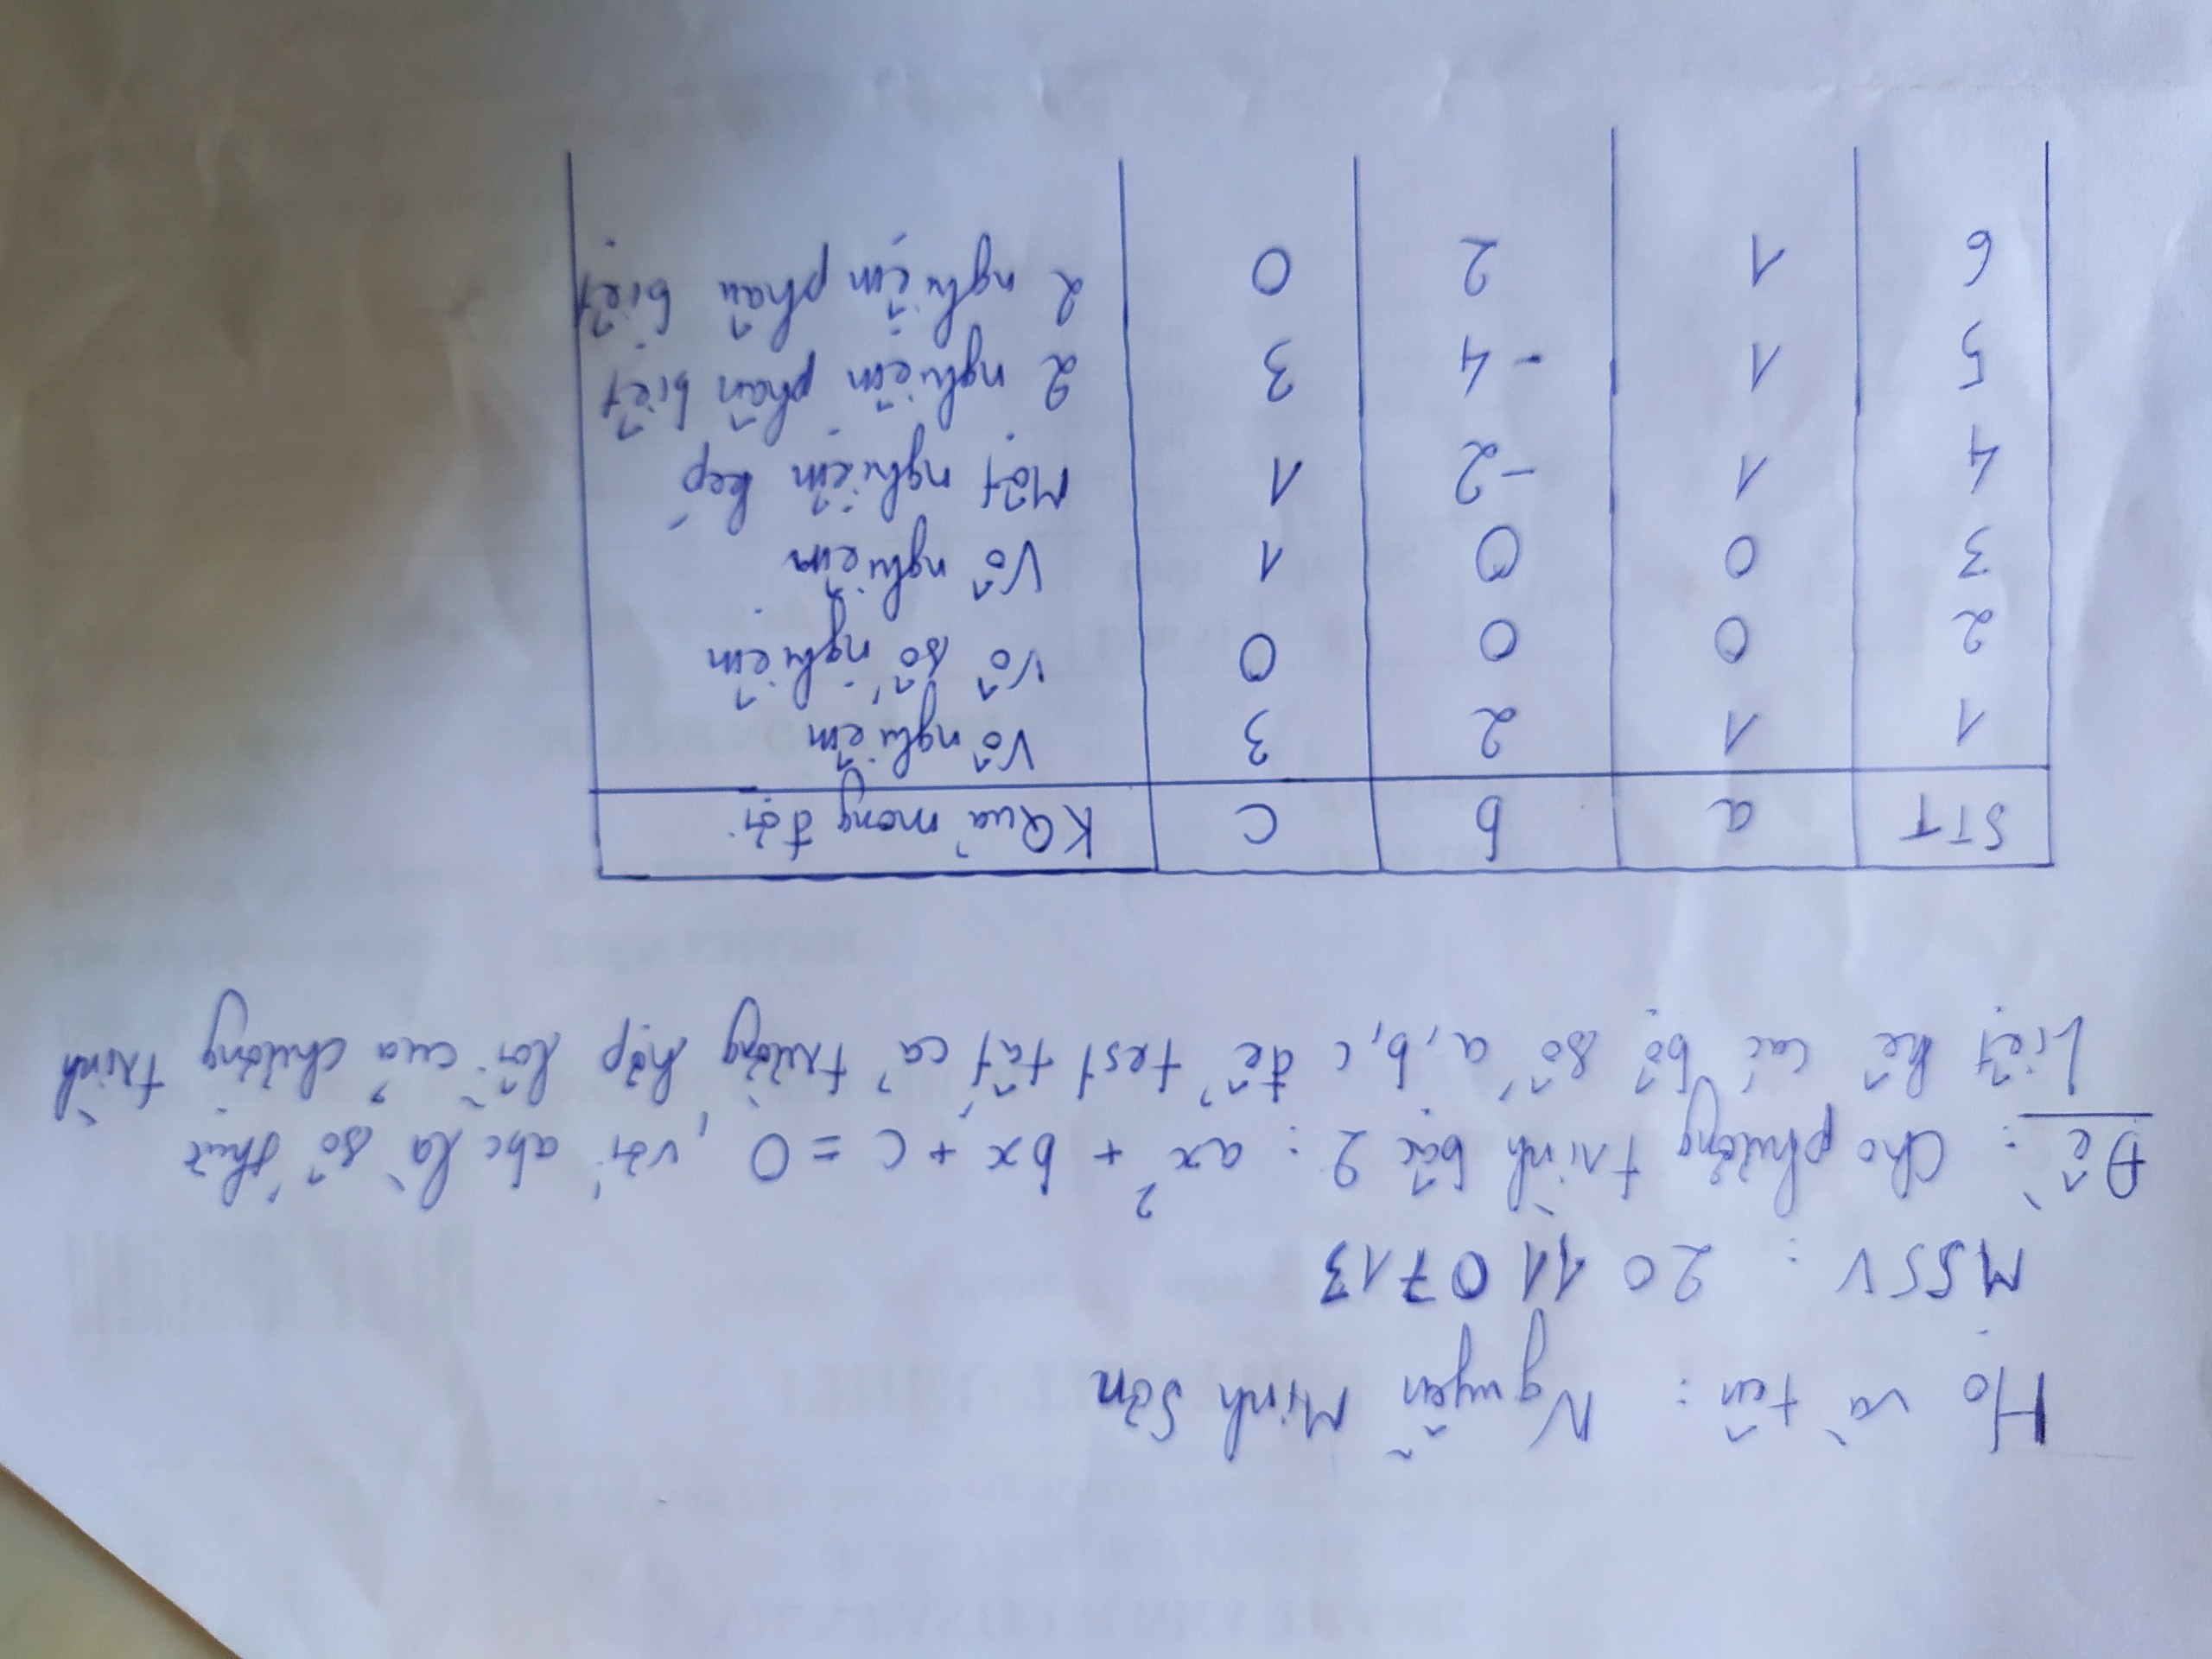 Họ và tên: Nguyễn Minh Sơn
MSSV: 20110713
Đề: Cho phương trình bậc 2: ax² + bx + c = 0, với abc là số thực
Liệt kê các bộ số a, b, c để test tất cả trường hợp lỗi của chương trình
STT a b c KQuả mong đợi
1 1 2 3 Vô nghiệm
2 0 0 0 Vô số nghiệm
3 0 0 1 Vô nghiệm
4 1 -2 1 Một nghiệm kép
5 1 -4 3 2 nghiệm phân biệt
6 1 2 0 2 nghiệm phân biệt